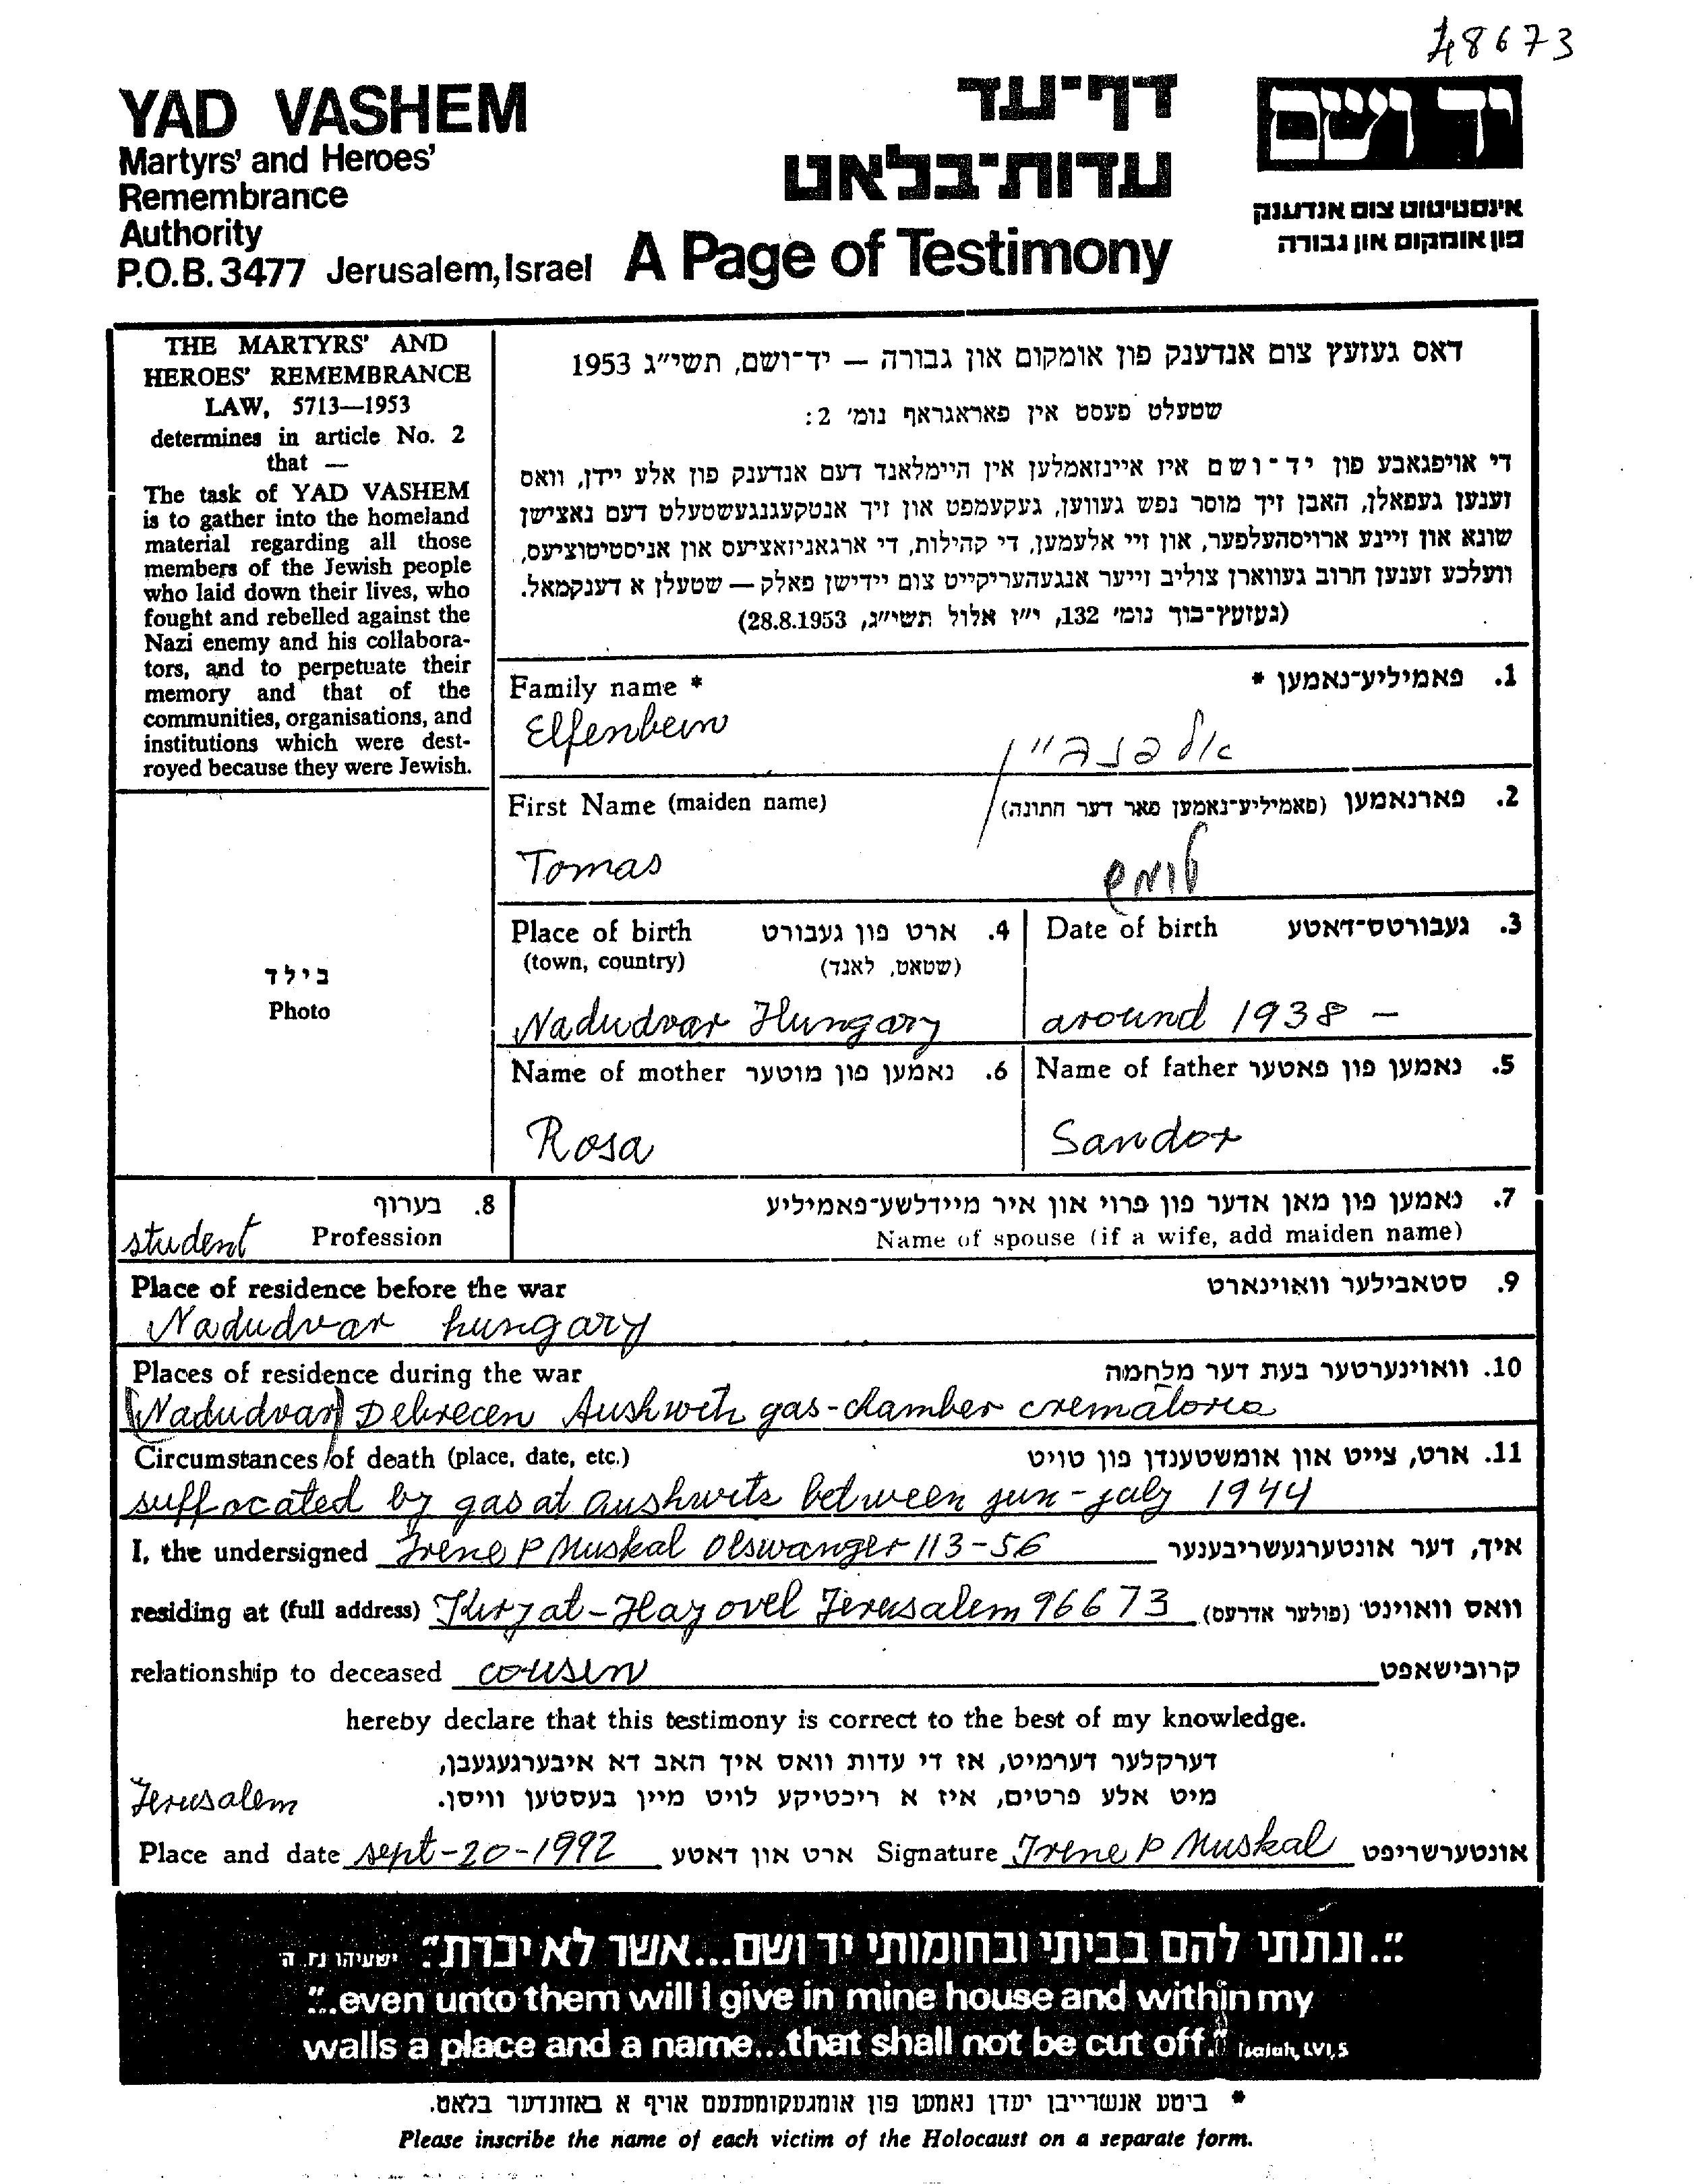 48673
YAD VASHEM
Martyrs' and Heroes'
Remembrance
Authority
P.O.B. 3477 Jerusalem, Israel
דף־עד
עדות־בלאט
A Page of Testimony
יד ושם
אינסטיטוט צום אנדענק
פון אומקום און גבורה
THE MARTYRS' AND
HEROES' REMEMBRANCE
LAW, 5713—1953
determines in article No. 2
that —
The task of YAD VASHEM
is to gather into the homeland
material regarding all those
members of the Jewish people
who laid down their lives, who
fought and rebelled against the
Nazi enemy and his collabora-
tors, and to perpetuate their
memory and that of the
communities, organisations, and
institutions which were dest-
royed because they were Jewish.
דאס געזעץ צום אנדענק פון אומקום און גבורה — יד־ושם, תשי״ג 1953
שטעלט פעסט אין פאראגראף נומ׳ 2:
די אויפגאבע פון יד־ושם איז איינזאמלען אין היימלאנד דעם אנדענק פון אלע יידן, וואס
זענען געפאלן, האבן זיך מוסר נפש געווען, געקעמפט און זיך אנטקעגנגעשטעלט דעם נאצישן
שונא און זיינע ארויסהעלפער, און זיי אלעמען, די קהילות, די ארגאניזאציעס און אניסטיטוציעס,
וועלכע זענען חרוב געווארן צוליב זייער אנגעהעריקייט צום יידישן פאלק — שטעלן א דענקמאל.
(געזעץ־בוך נומ׳ 132, י״ז אלול תשי״ג, 28.8.1953)
Family name *
1. פאמיליע־נאמען *
Elfenbein
אלפנביין
First Name (maiden name)
2. פארנאמען (פאמיליע־נאמען פאר דער חתונה)
Tomas
טומש
Place of birth 4. ארט פון געבורט
(town, country) (שטאט, לאנד)
Nadudvar Hungary
Date of birth 3. געבורטס־דאטע
around 1938 –
בילד
Photo
Name of mother 6. נאמען פון מוטער
Rosa
Name of father 5. נאמען פון פאטער
Sandor
8. בערוף
student Profession
7. נאמען פון מאן אדער פון פרוי און איר מיידלשע־פאמיליע
Name of spouse (if a wife, add maiden name)
Place of residence before the war 9. סטאבילער וואוינארט
Nadudvar hungary
Places of residence during the war 10. וואוינערטער בעת דער מלחמה
(Nadudvar) Debrecen Aushwitz gas-chamber crematoria
Circumstances of death (place, date, etc.) 11. ארט, צייט און אומשטענדן פון טויט
suffocated by gas at aushwitz between jun-july 1944
I, the undersigned Irene P Muskal Olswanger 113-56 איך, דער אונטערגעשריבענער
residing at (full address) Kiryat-Hayovel Jerusalem 96673 וואס וואוינט (פולער אדרעס)
relationship to deceased cousin קרובישאפט
hereby declare that this testimony is correct to the best of my knowledge.
דערקלער דערמיט, אז די עדות וואס איך האב דא איבערגעגעבן,
מיט אלע פרטים, איז א ריכטיקע לויט מיין בעסטען וויסן.
Jerusalem
Place and date sept-20-1992 ארט און דאטע Signature Irene P Muskal אונטערשריפט
"...ונתתי להם בביתי ובחומותי יד ושם...אשר לא יכרת" ישעיהו נו, ה
"...even unto them will I give in mine house and within my
walls a place and a name...that shall not be cut off." Isaiah, LVI, 5
* ביטע אנשרייבן יעדן נאמען פון אומגעקומענעם אויף א באזונדער בלאט.
Please inscribe the name of each victim of the Holocaust on a separate form.